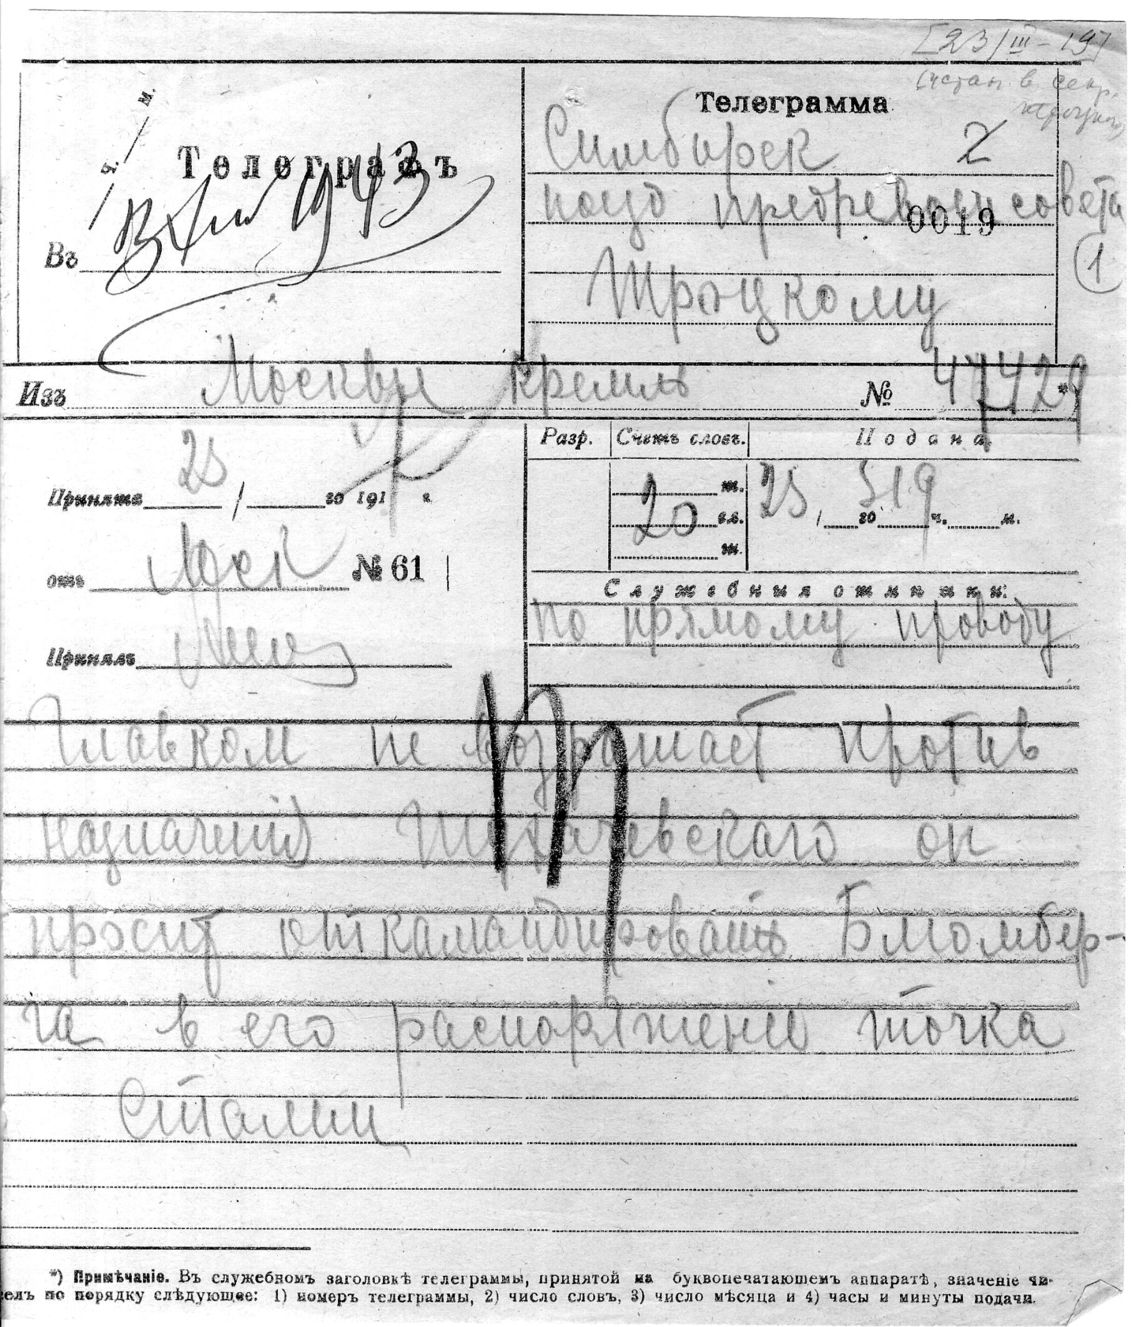 [23/III-19]
Телеграфъ
ч. м.
Вх 1943
Въ
Телеграмма
Симбирск 2
поезд предреввоенсовета
0019
1
Троцкому
Изъ Москвы Кремль № 47429
Принята 23 / го 191 г.
отъ Мск № 61
Принялъ
Разр. Счетъ словъ. Подана
20 23 го 519 ч. м.
Служебныя отмѣтки:
по прямому проводу
Главком не возражает против
назначения Тухачевскаго он
просит откамандировать Блюмбер-
га в его распоряжение точка
Сталин
*) Примѣчаніе. Въ служебномъ заголовкѣ телеграммы, принятой на буквопечатающемъ аппаратѣ, значеніе чи-
селъ по порядку слѣдующее: 1) номеръ телеграммы, 2) число словъ, 3) число мѣсяца и 4) часы и минуты подачи.